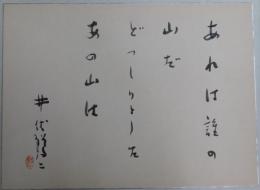 あれは誰の
山だ
どつしりとした
あの山は
井伏鱒二